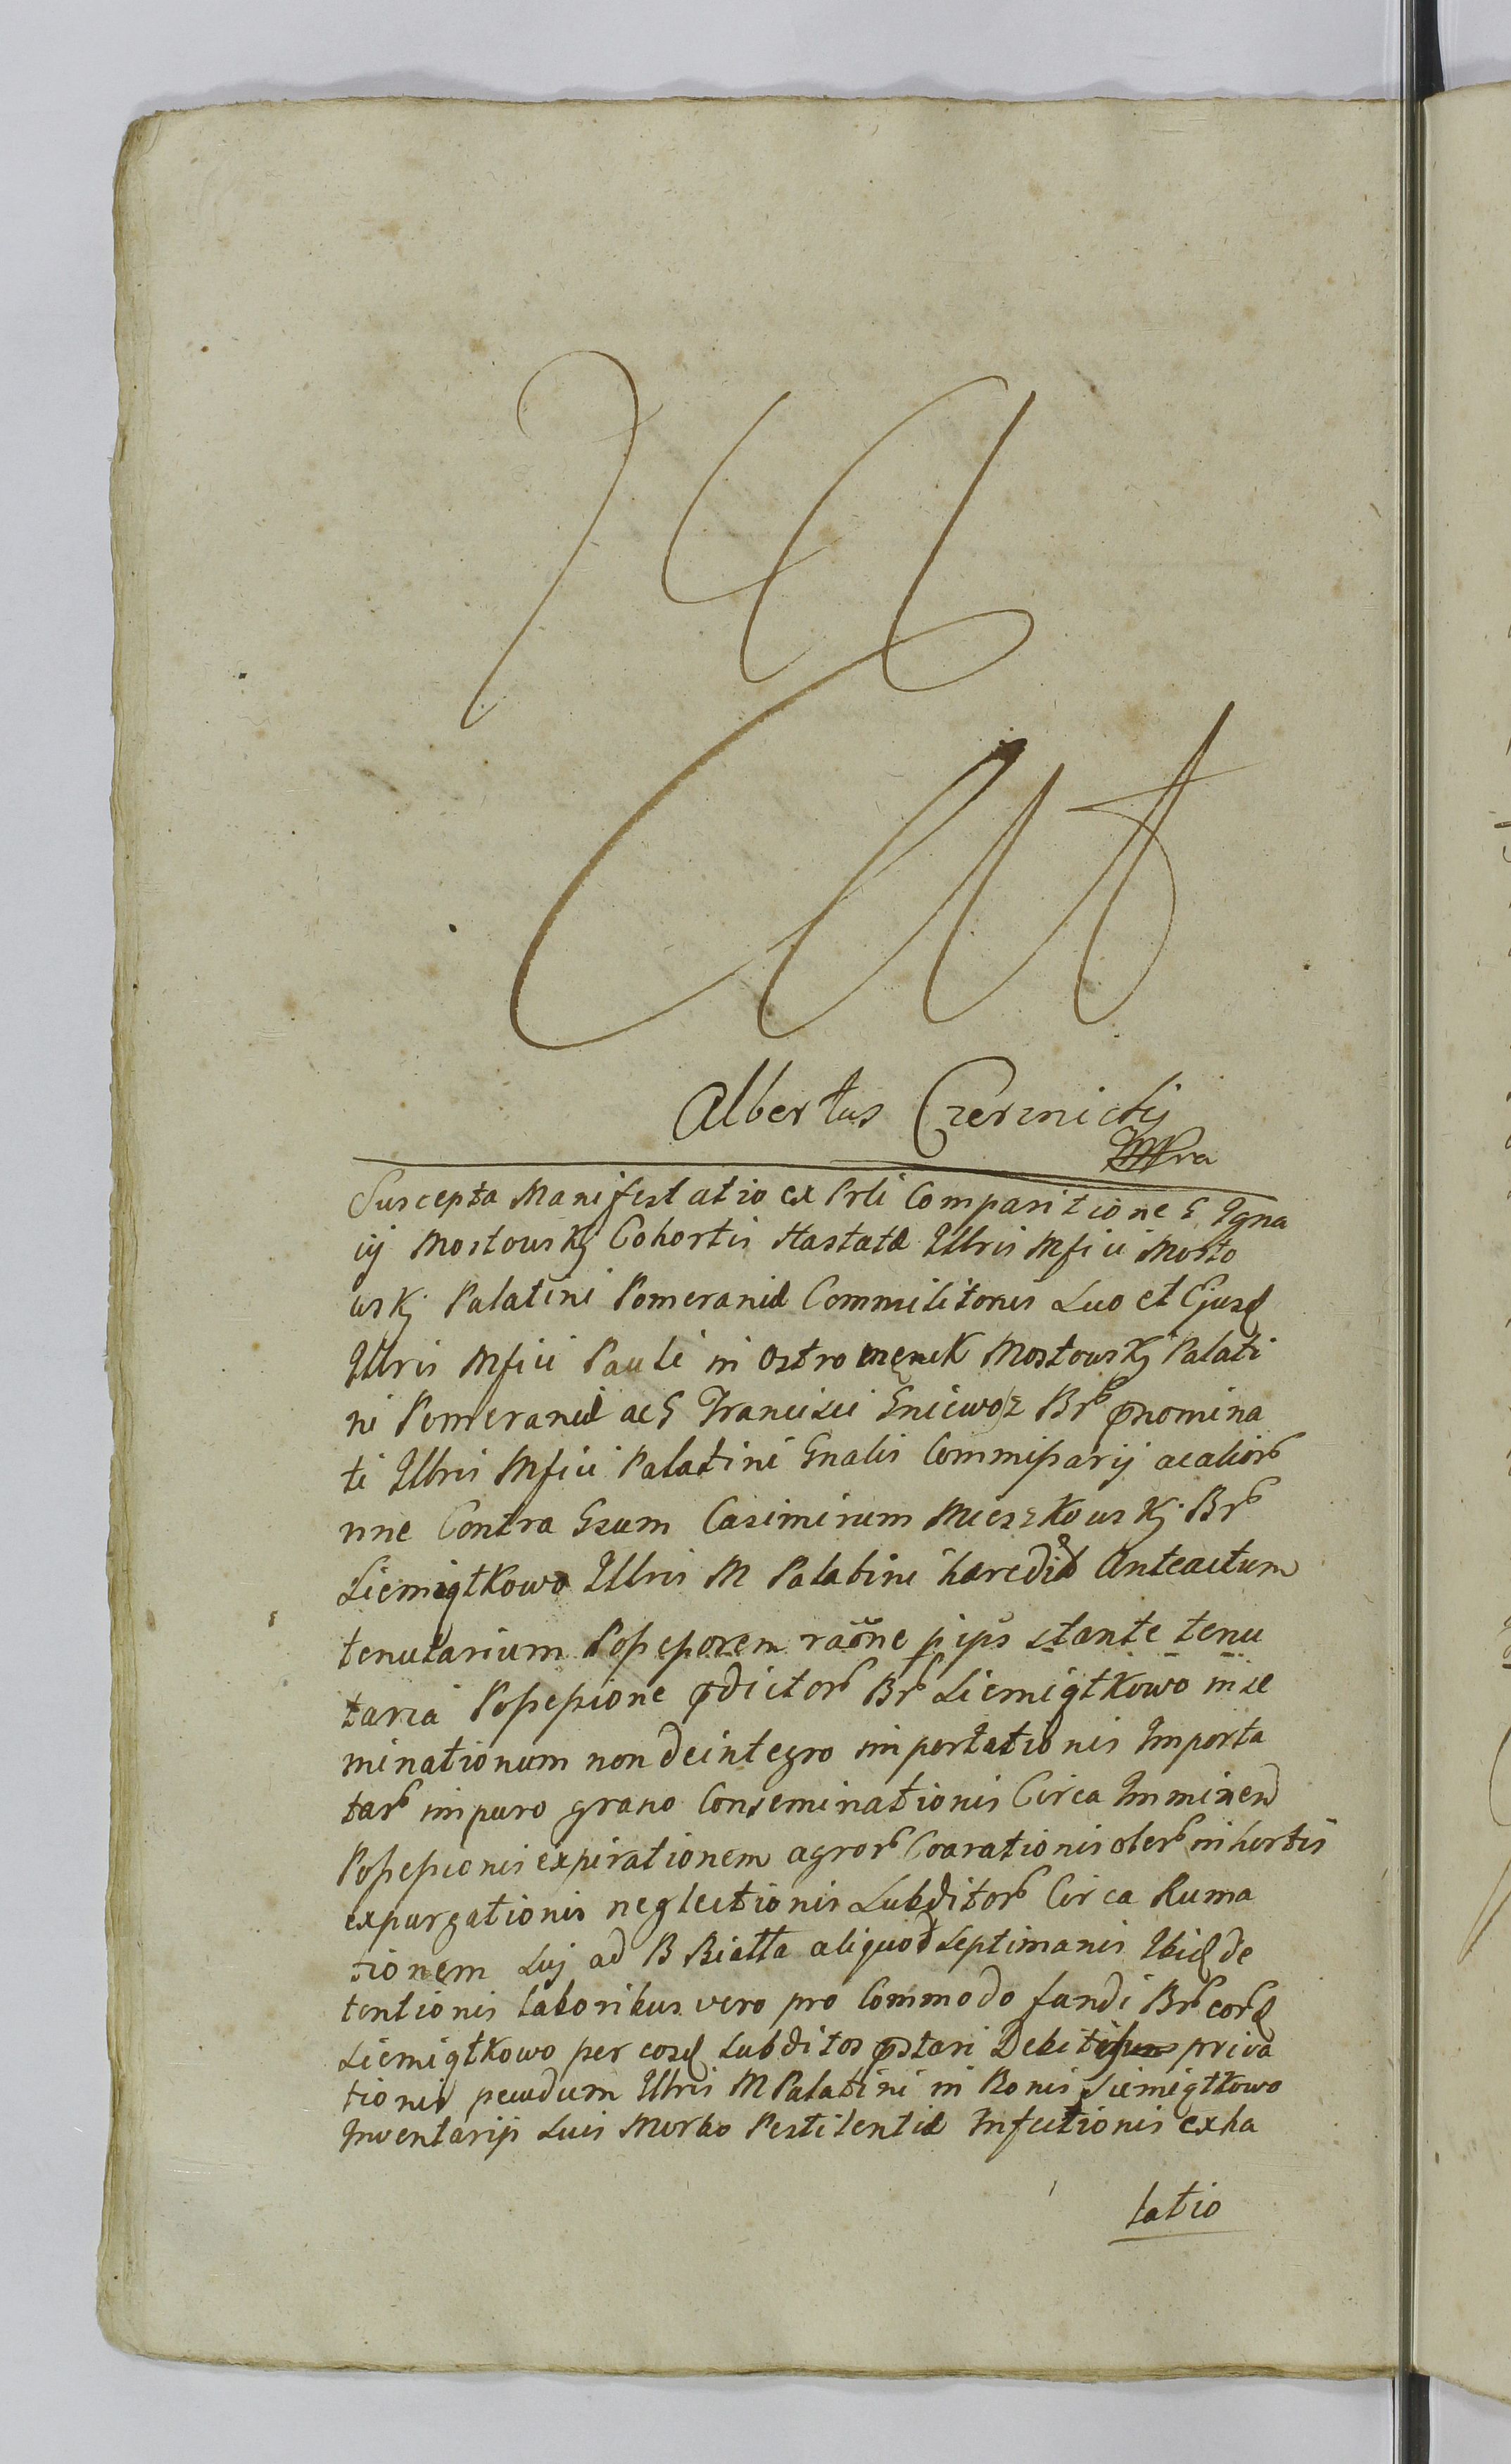 Albertus Czernicky
MPra
Suscepta Manifestatio ex Prli Comparitione G Igna
cij Mostowskj Cohortis Hastatæ Illris Mfici Mosto
wskj Palatini Pomeraniæ Commilitonis Suo et Ejusd
Illris Mfici Pauli in Ostromęnck Mostowskj Palati
ni Pomeraniæ ac G Francisci Gniewosz Br prnomina
ti Illris Mfici Palatini Gnalis Commissarij ac alior
nne Contra Gsum Casimirum Mieszkowskj Br
Siemiątkowo Illris M Palatini hæredit Anteactum
tenutarium Possessorem raone p ips stante tenu
taria Possessione prdictor Br Siemiątkowo inse
minationum non deintegro importationis Importa
tar impuro grano Conseminationis Circa Imminen
Possessionis expirationem agror Coarationis oler in hortis
expurgationis neglectionis Subditor Circa Ruma
tionem Sui ad B Biatta aliquod Septimanis Ibid de
tentionis laboribus vero pro Commodo fundi Br eord
Siemiątkowo per eosd Subditos prstari Debitis priva
tionis pecudum Illris M Palatini in Bonis Siemiątkowo
Inventarij Suis Morbo Pestilentiæ Infectionis exha
latio